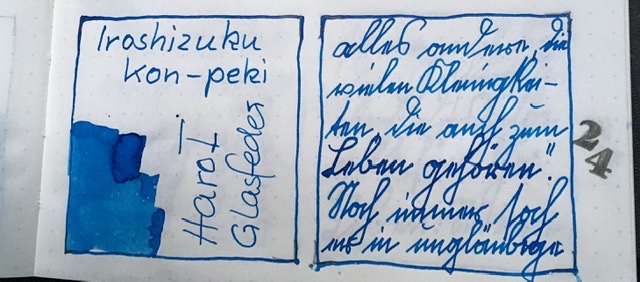 Iroshizuku
Kon-peki
Glasfeder
alles andere, die
vielen Kleinigkei-
ten, die auch zum
Leben gehören".
Noch immer sah
er in ungläubige
24